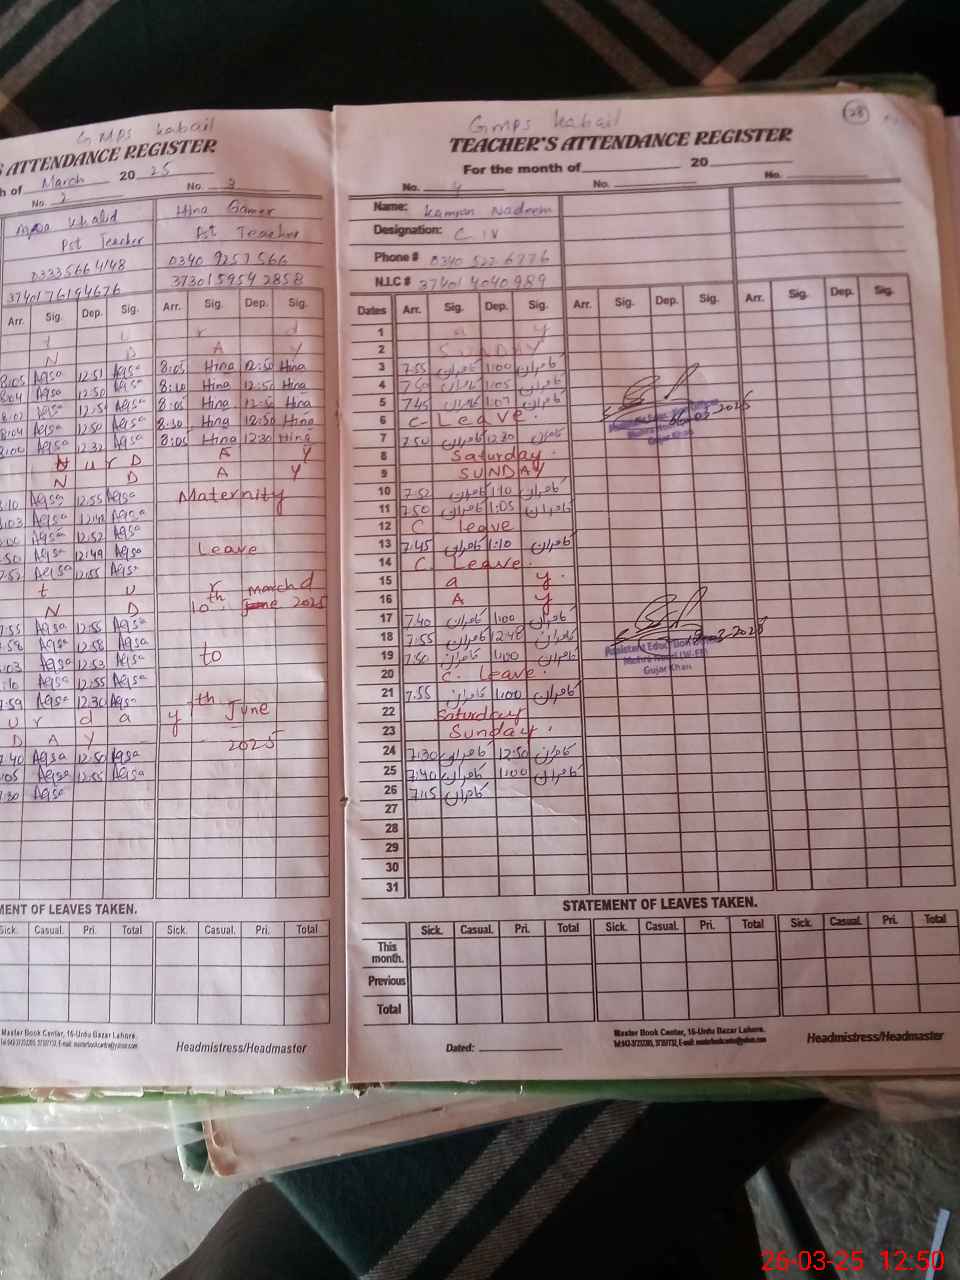 GMPS Kabail
S ATTENDANCE REGISTER
h of March 2025
No. 2 No. 3
Khalid Hina
Pst Teacher Pst Teacher
03335664148
3740176194676 3730159542858
Arr. Sig. Dep. Sig. Arr. Sig. Dep. Sig.
t u r d
N D A Y
8:05 Aqsa 12:51 Aqsa 8:05 Hina 12:50 Hina
8:04 Aqsa 12:50 Aqsa 8:10 Hina 12:50 Hina
8:02 Aqsa 12:51 Aqsa 8:05 Hina 12:50 Hina
8:04 Aqsa 12:50 Aqsa 8:30 Hina 12:50 Hina
8:00 Aqsa 12:32 Aqsa 8:05 Hina 12:30 Hina
u r D A Y
N D A Y
:10 Aqsa 12:55 Aqsa Maternity
:03 Aqsa Aqsa
:00 Aqsa 12:52 Aqsa
:50 Aqsa 12:49 Aqsa Leave
7:52 Aqsa 12:55 Aqsa
t u r d
N D 10th March 2025
7:55 Aqsa 12:55 Aqsa
7:58 Aqsa 12:58 Aqsa
:03 Aqsa 12:53 Aqsa to
:10 Aqsa 12:55 Aqsa
7:59 Aqsa 12:30 Aqsa
u r d a y th June
D A Y 2025
7:40 Aqsa 12:50 Aqsa
:05 Aqsa 12:55 Aqsa
7:30 Aqsa
MENT OF LEAVES TAKEN.
Sick. Casual. Pri. Total Sick. Casual. Pri. Total
Master Book Center, 16-Urdu Bazar Lahore.
Headmistress/Headmaster
GMPS Kabail
28
TEACHER'S ATTENDANCE REGISTER
For the month of 20
No. 4 No. No.
Name: Kamran Nadeem
Designation: C IV
Phone # 0340 522 6776
N.I.C # 37401 4040989
Dates Arr. Sig. Dep. Sig. Arr. Sig. Dep. Sig. Arr. Sig. Dep. Sig.
1 a y
2 SUNDAY
3 7:55 کامران 1:00 کامران
4 7:50 کامران 1:05 کامران
5 7:45 کامران 1:07 کامران
6 C-Leave.
7 7:50 کامران 12:30 کامران
8 Saturday.
9 SUNDAY
10 7:52 کامران 1:10 کامران
11 7:50 کامران 1:05 کامران
12 C leave
13 7:45 کامران 1:10 کامران
14 C. Leave.
15 a y.
16 A y
17 7:40 کامران 1:00 کامران
18 7:55 کامران 12:48 کامران
19 7:50 کامران 1:00 کامران
20 C. Leave.
21 7:55 کامران 1:00 کامران
22 Saturday
23 Sunday.
24 7:30 کامران 12:50 کامران
25 7:40 کامران 1:00 کامران
26 7:15 کامران
27
28
29
30
31
Gujar Khan
Assistant Education
Gujar Khan
STATEMENT OF LEAVES TAKEN.
Sick. Casual. Pri. Total Sick. Casual. Pri. Total Sick. Casual. Pri. Total
This month.
Previous
Total
Dated:
Master Book Center, 16-Urdu Bazar Lahore.
Headmistress/Headmaster
26-03-25 12:50